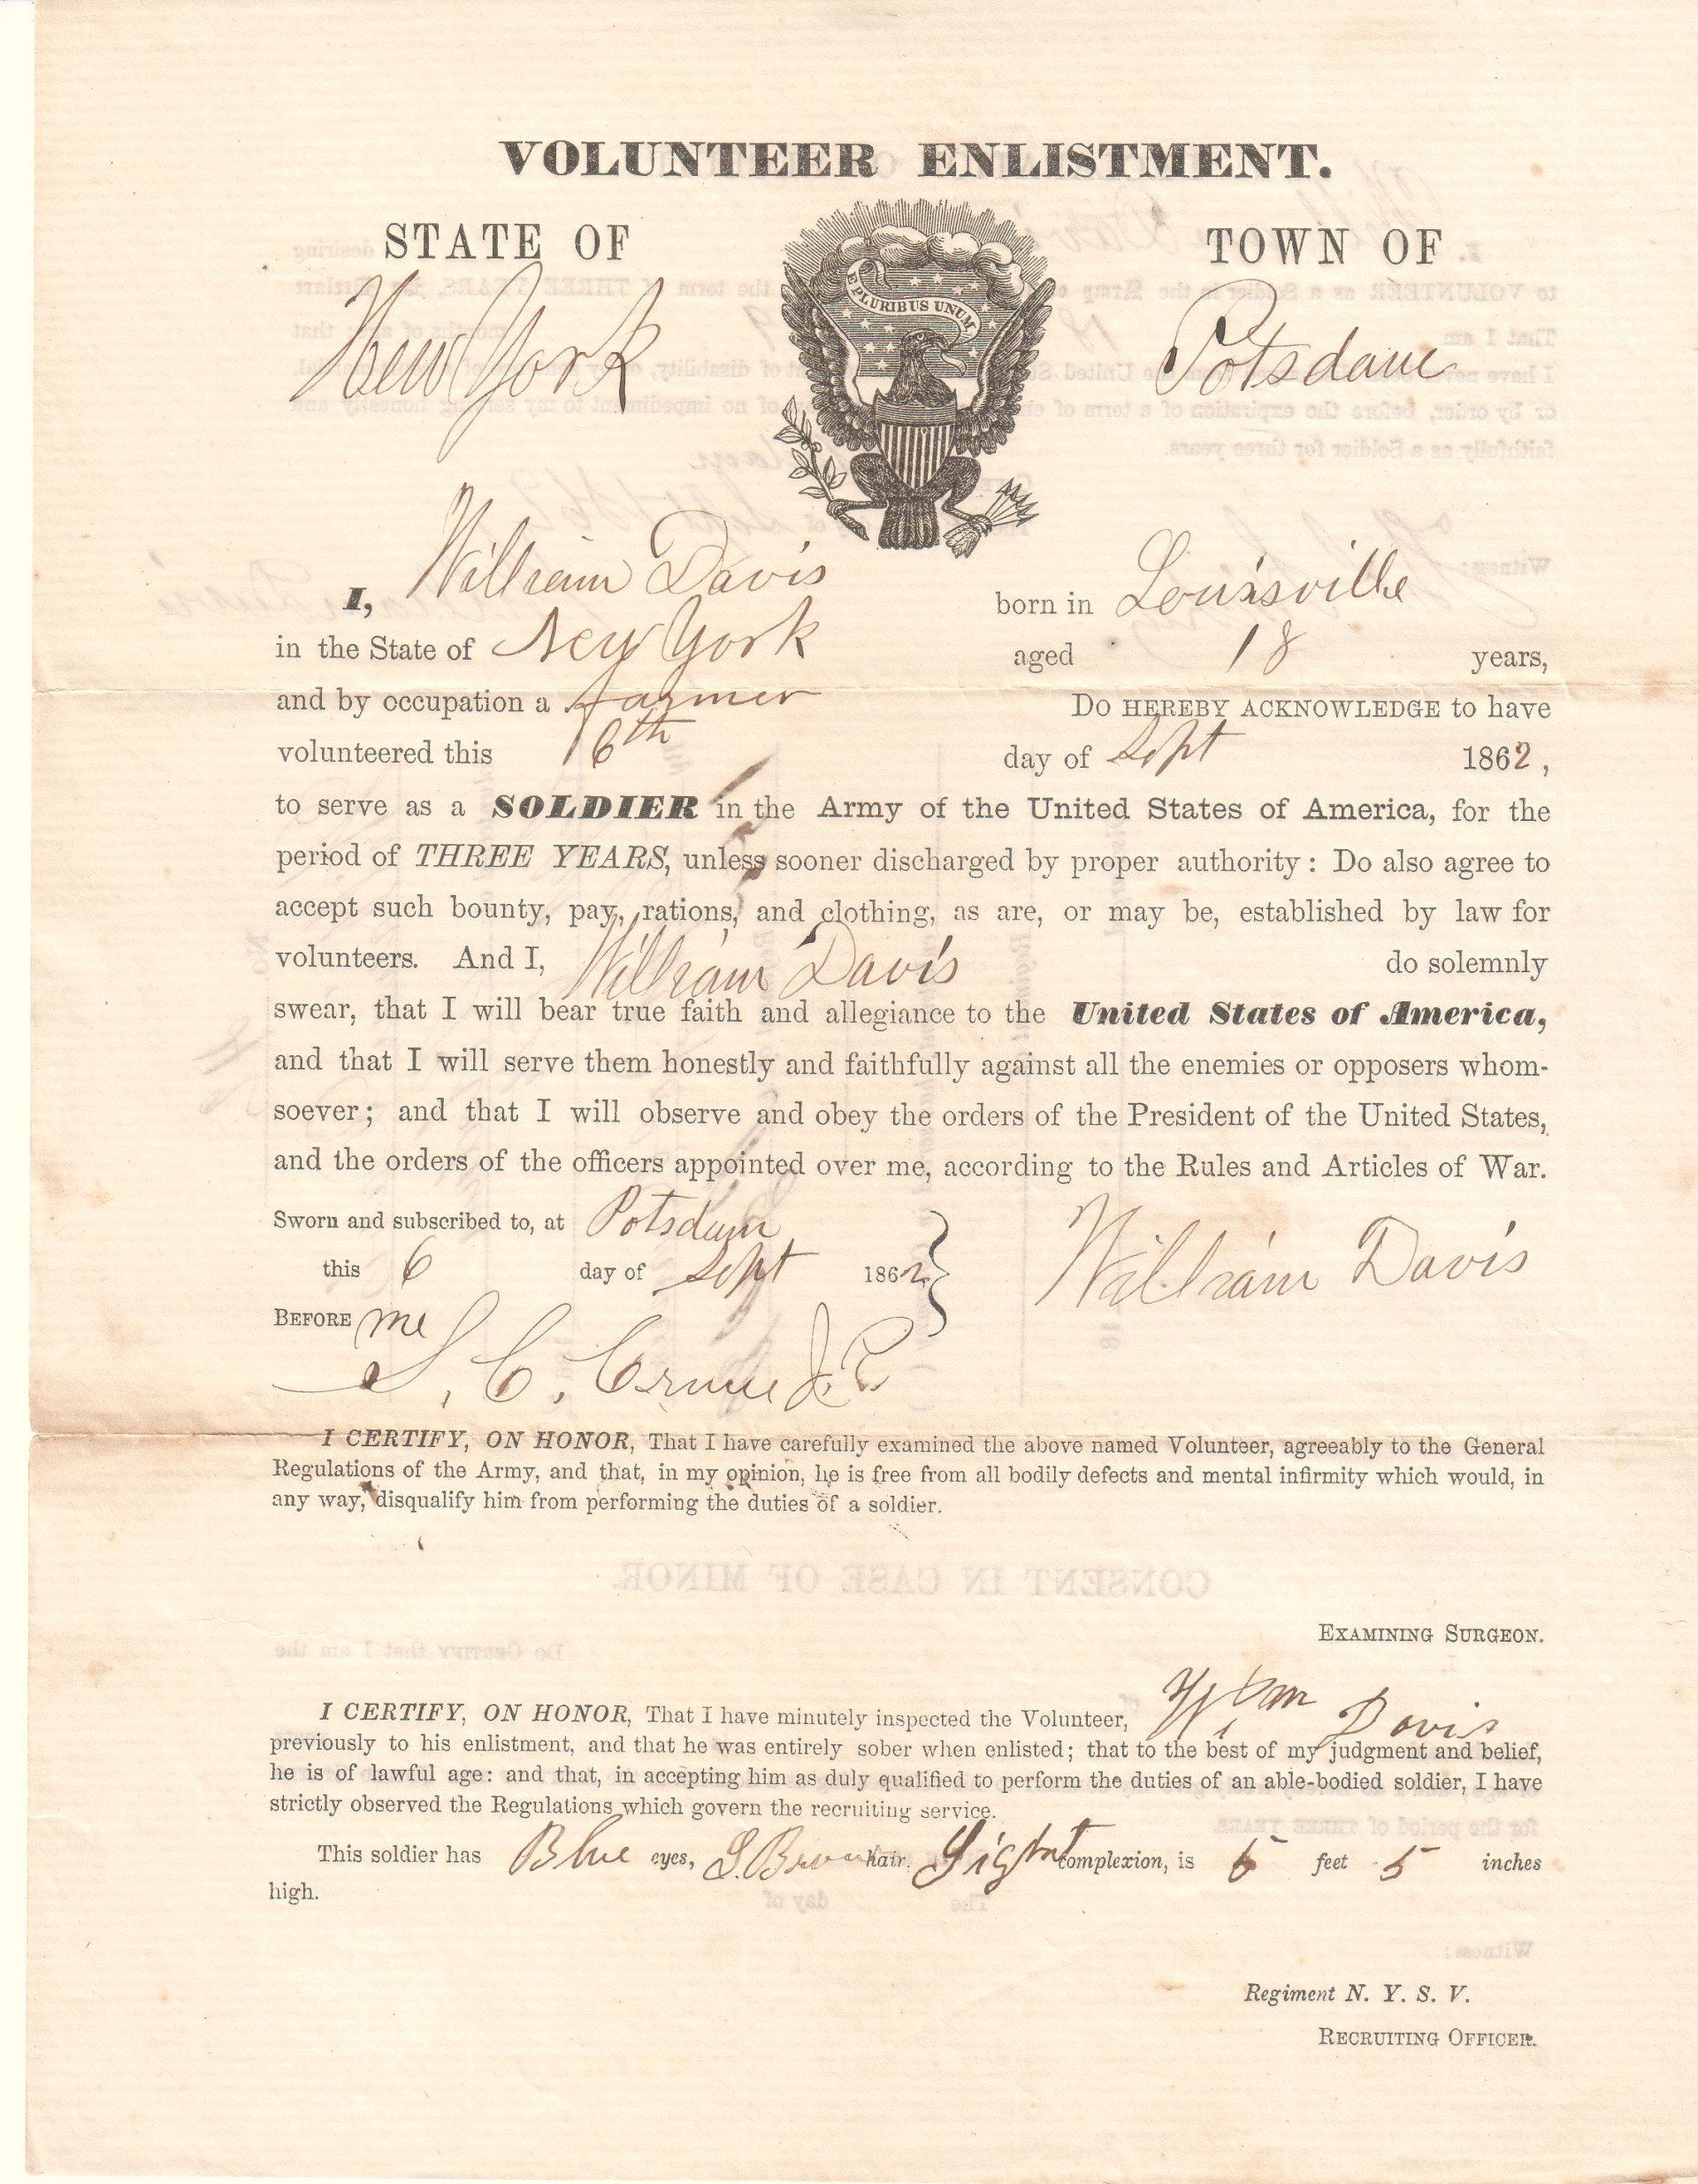 VOLUNTEER ENLISTMENT.
STATE OF TOWN OF
E PLURIBUS UNUM
New York Potsdam
I, William Davis born in Louisville
in the State of New York aged 18 years,
and by occupation a farmer Do HEREBY ACKNOWLEDGE to have
volunteered this 6th day of Sept 1862,
to serve as a SOLDIER in the Army of the United States of America, for the
period of THREE YEARS, unless sooner discharged by proper authority: Do also agree to
accept such bounty, pay, rations, and clothing, as are, or may be, established by law for
volunteers. And I, William Davis do solemnly
swear, that I will bear true faith and allegiance to the United States of America,
and that I will serve them honestly and faithfully against all the enemies or opposers whom-
soever; and that I will observe and obey the orders of the President of the United States,
and the orders of the officers appointed over me, according to the Rules and Articles of War.
Sworn and subscribed to, at Potsdam
this 6 day of Sept 1862 William Davis
BEFORE me
S. C. Crane J. P.
I CERTIFY, ON HONOR, That I have carefully examined the above named Volunteer, agreeably to the General
Regulations of the Army, and that, in my opinion, he is free from all bodily defects and mental infirmity which would, in
any way, disqualify him from performing the duties of a soldier.
EXAMINING SURGEON.
I CERTIFY, ON HONOR, That I have minutely inspected the Volunteer, Wm Davis
previously to his enlistment, and that he was entirely sober when enlisted; that to the best of my judgment and belief,
he is of lawful age: and that, in accepting him as duly qualified to perform the duties of an able-bodied soldier, I have
strictly observed the Regulations which govern the recruiting service.
This soldier has Blue eyes, L. Brown hair, Light complexion, is 5 feet 5 inches
high.
Regiment N. Y. S. V.
RECRUITING OFFICER.